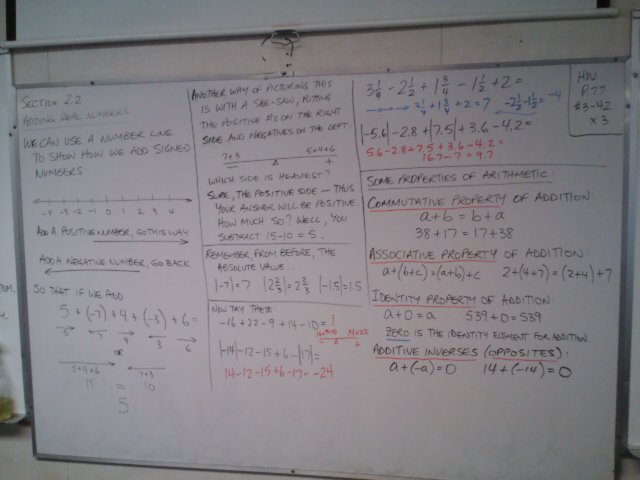 SECTION 2.2
ADDING REAL NUMBERS
WE CAN USE A NUMBER LINE
TO SHOW HOW WE ADD SIGNED
NUMBERS:
-4 -3 -2 -1 0 1 2 3 4
ADD A POSITIVE NUMBER, GO THIS WAY
ADD A NEGATIVE NUMBER, GO BACK
SO THAT IF WE ADD
5 + (-7) + 4 + (-3) + 6 =
5 7 4 3 6
OR
5+4+6 7+3
15 = 10
5
ANOTHER WAY OF PICTURING THIS
IS WITH A SEE-SAW, PUTTING
THE POSITIVE #S ON THE RIGHT
SIDE AND NEGATIVES ON THE LEFT
7+3 5+4+6
- +
WHICH SIDE IS HEAVIEST?
SURE, THE POSITIVE SIDE - THUS
YOUR ANSWER WILL BE POSITIVE.
HOW MUCH SO? WELL, YOU
SUBTRACT 15-10 = 5.
REMEMBER, FROM BEFORE, THE
ABSOLUTE VALUE...
|-7| = 7 |2 2/3| = 2 2/3 |-1.5| = 1.5
NOW TRY THESE:
-16 + 22 - 9 + 14 - 10 = 1
14+22
|-14| - 12 - 15 + 6 - |17| =
14 - 12 - 15 + 6 - 17 = -24
3 1/4 - 2 1/2 + 1 3/4 - 1 1/2 + 2 =
3 1/4 + 1 3/4 + 2 = 7 -2 1/2 - 1 1/2 = -4
|-5.6| - 2.8 + |7.5| + 3.6 - 4.2 =
5.6 - 2.8 + 7.5 + 3.6 - 4.2 =
16.7 - 7 = 9.7
HW
P.77
#3-42
x 3
SOME PROPERTIES OF ARITHMETIC:
COMMUTATIVE PROPERTY OF ADDITION:
a + b = b + a
38 + 17 = 17 + 38
ASSOCIATIVE PROPERTY OF ADDITION:
a + (b+c) = (a+b) + c 2 + (4+7) = (2+4) + 7
IDENTITY PROPERTY OF ADDITION:
a + 0 = a 539 + 0 = 539
ZERO IS THE IDENTITY ELEMENT FOR ADDITION
ADDITIVE INVERSES (OPPOSITES):
a + (-a) = 0 14 + (-14) = 0